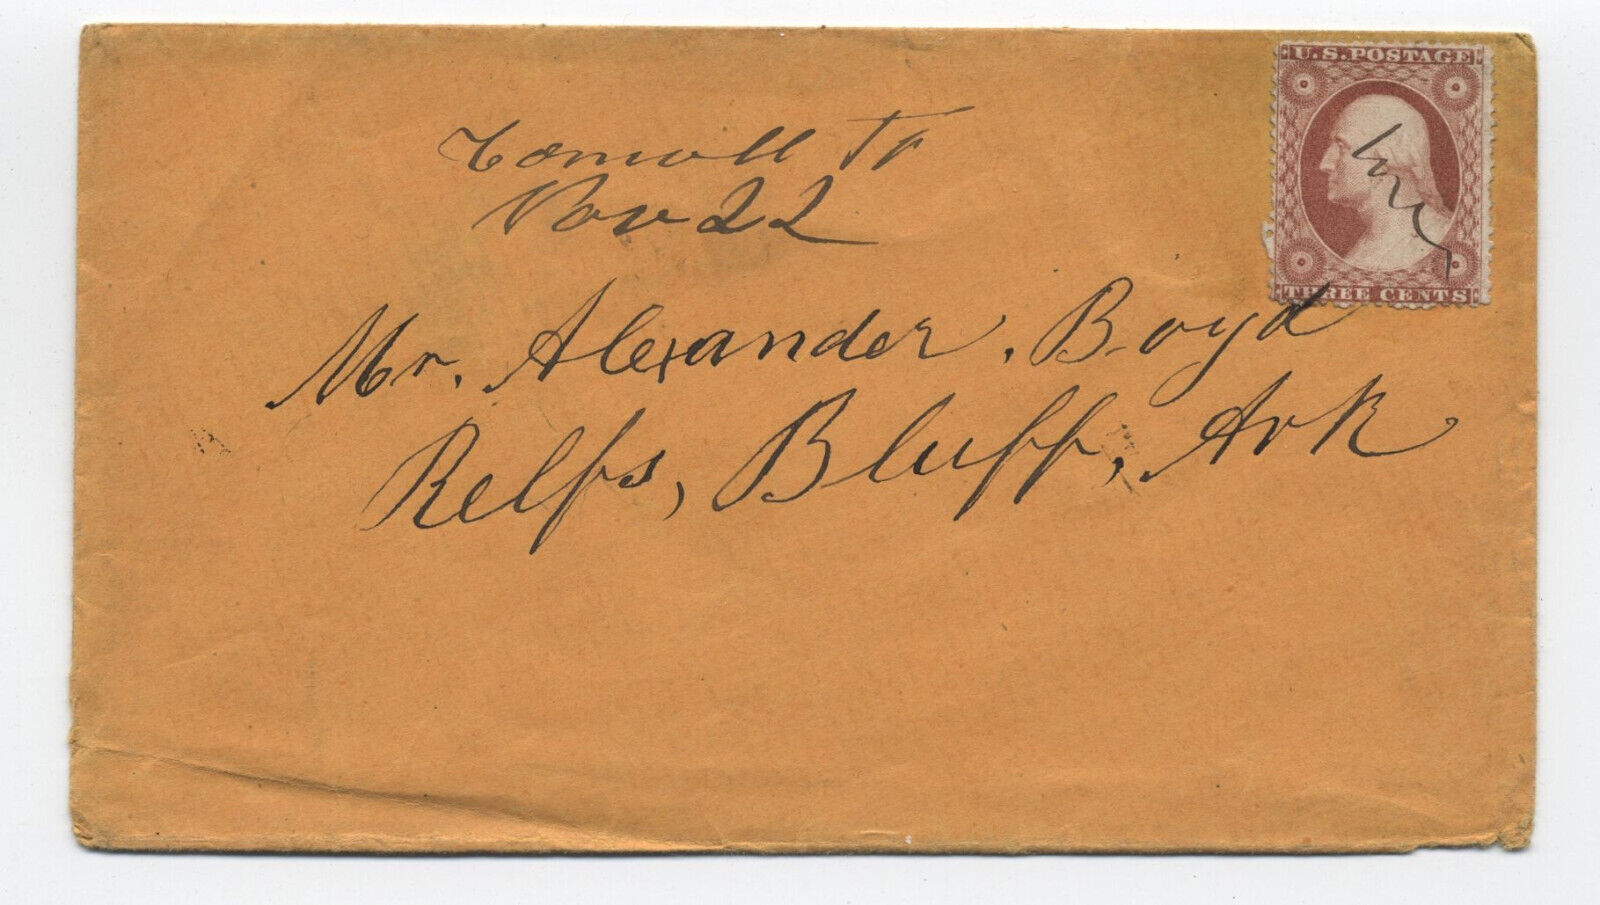 U.S. POSTAGE
Nov 22
THREE CENTS
Mr. Alexander. Boyd
Relfs, Bluff, Ark